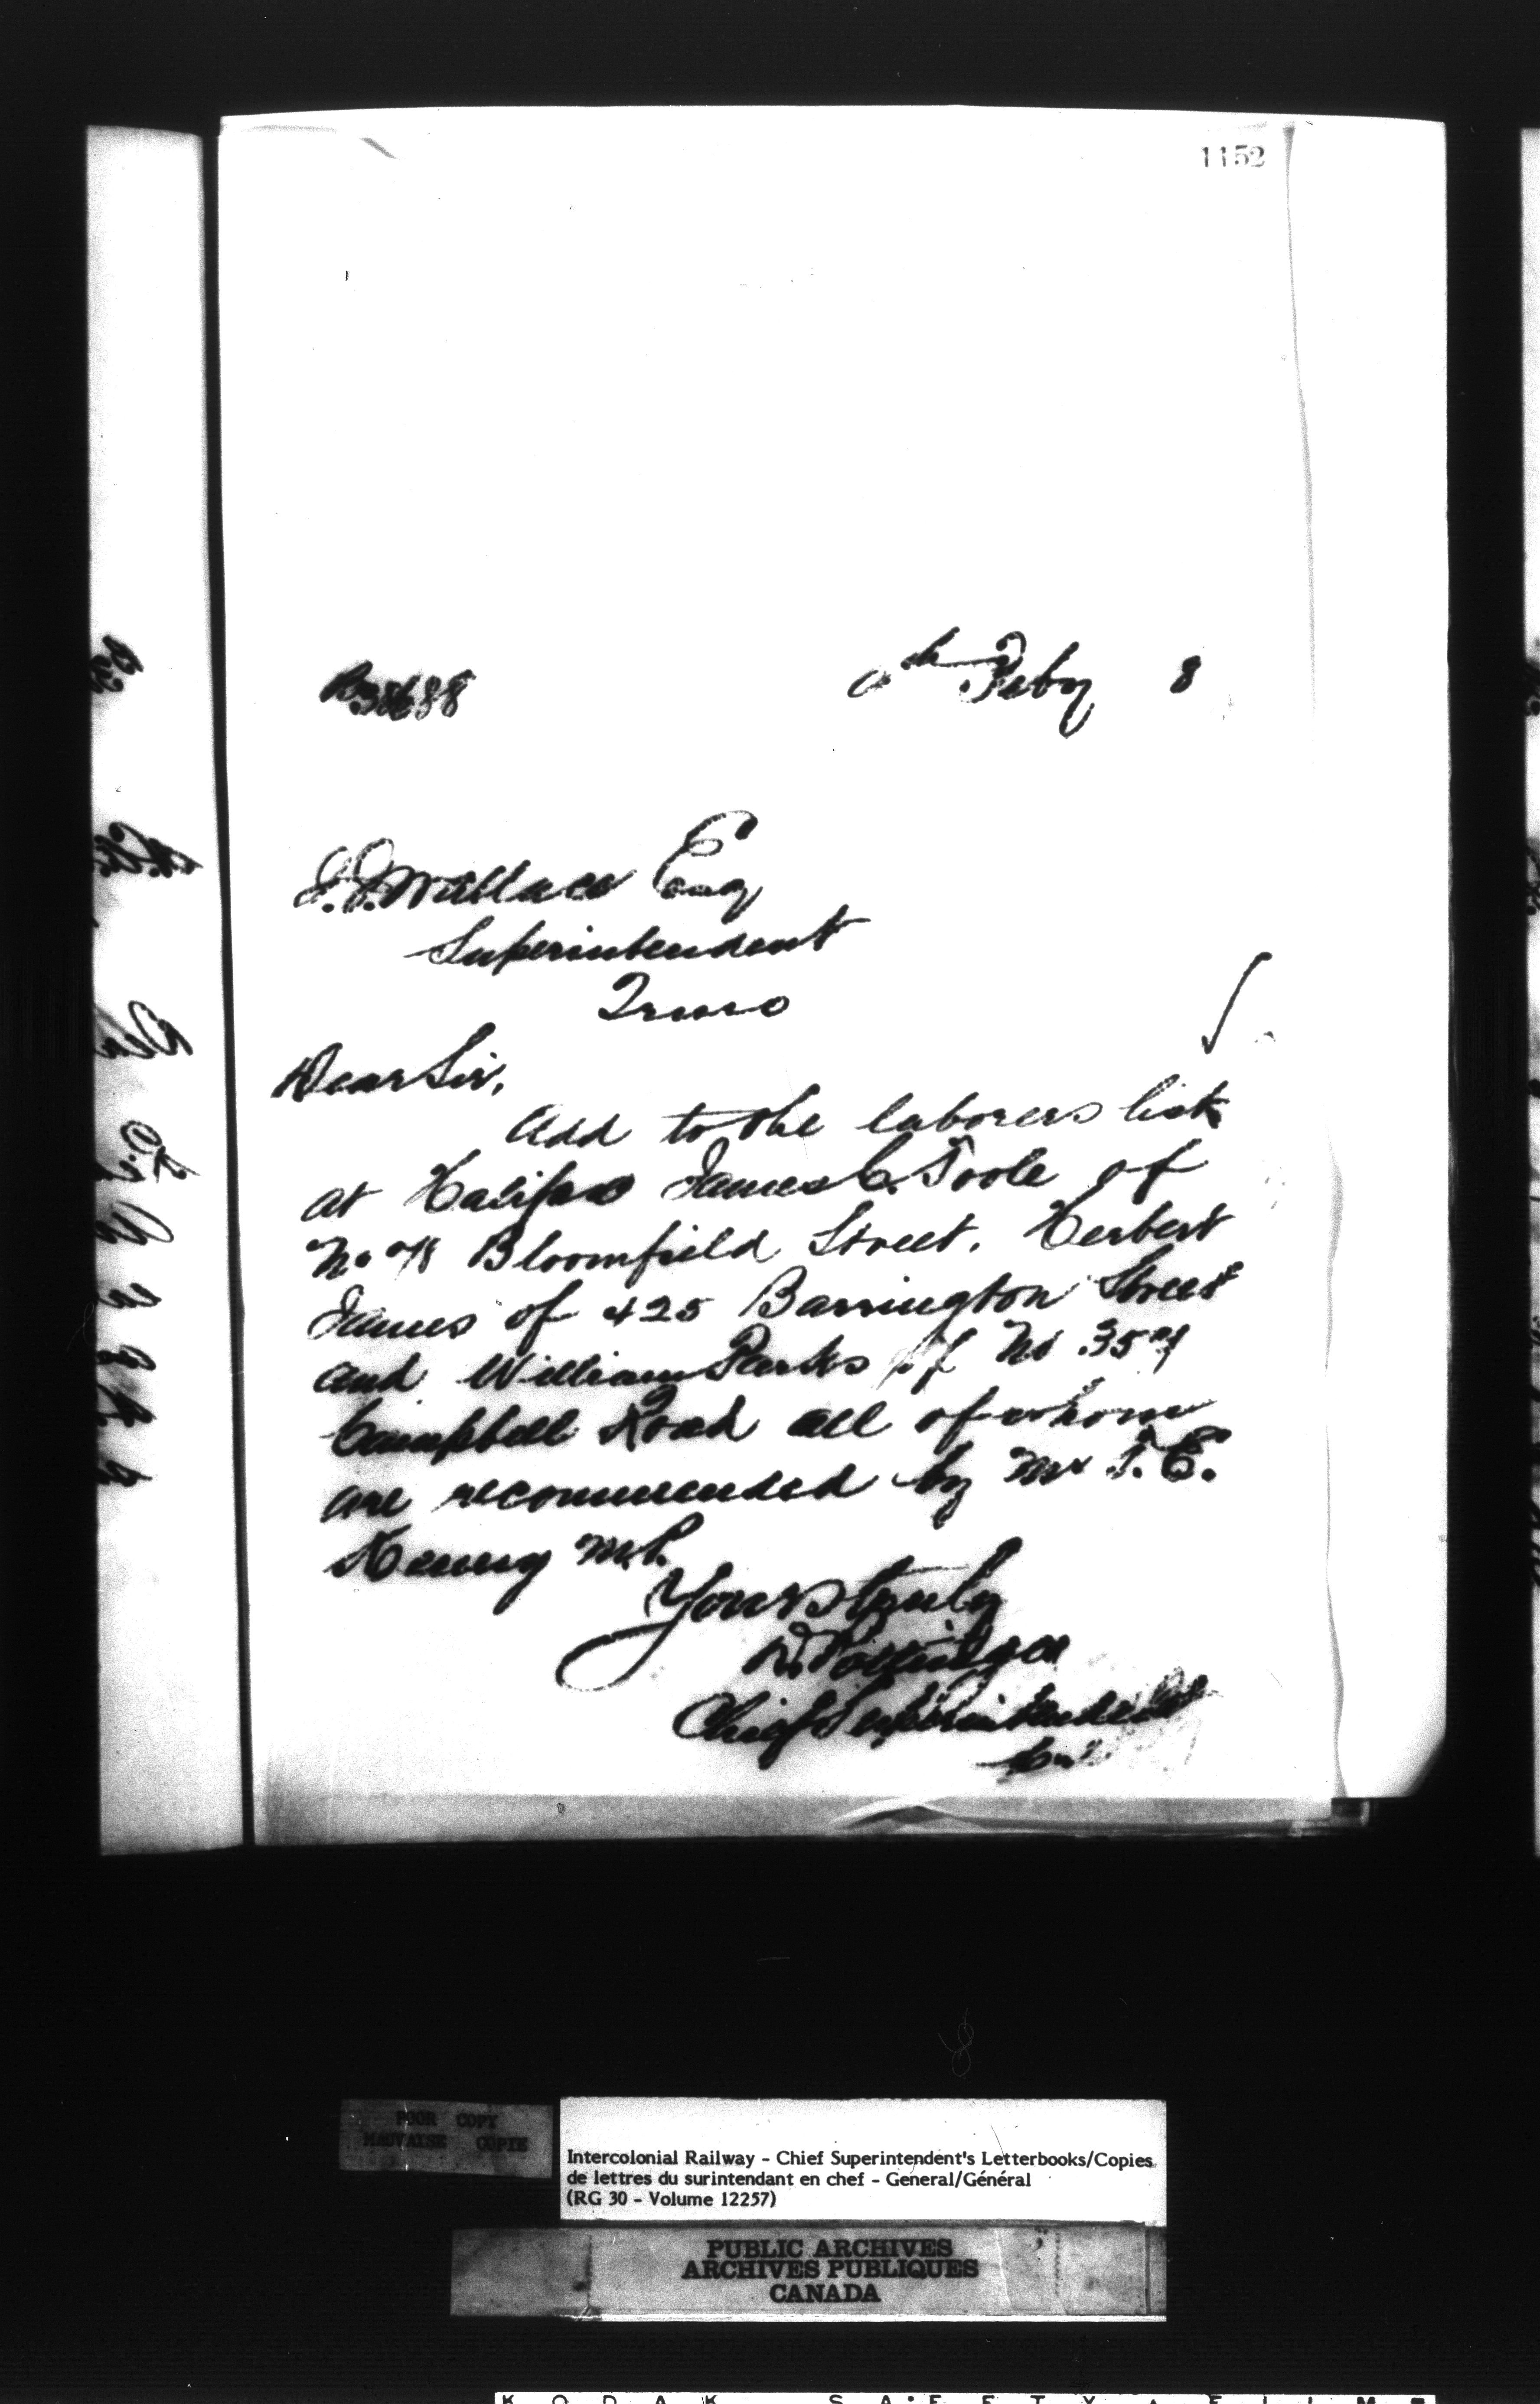 1152
Feby 8
J.J. Wallace Esq
Superintendent
Truro
Dear Sir,
Add to the laborers list
at Halifax James C. Toole of
No Bloomfield Street. Herbert
James of 425 Barrington Street
and William Parks of No
Campbell Road all of whom
are recommended by Mr T. E.
Kenny M.P.
Yours truly
D. Pottinger
Chief Superintendent
POOR COPY
MAUVAISE COPIE
Intercolonial Railway - Chief Superintendent's Letterbooks/Copies
de lettres du surintendant en chef - General/Général
(RG 30 - Volume 12257)
PUBLIC ARCHIVES
ARCHIVES PUBLIQUES
CANADA
KODAK SAFETY FILM